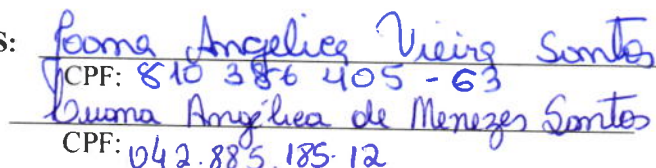 S: Joana Angelica Vieira Santos
CPF: 810 386 405-63
Luana Angélica de Menezes Santos
CPF: 042.885.185-12